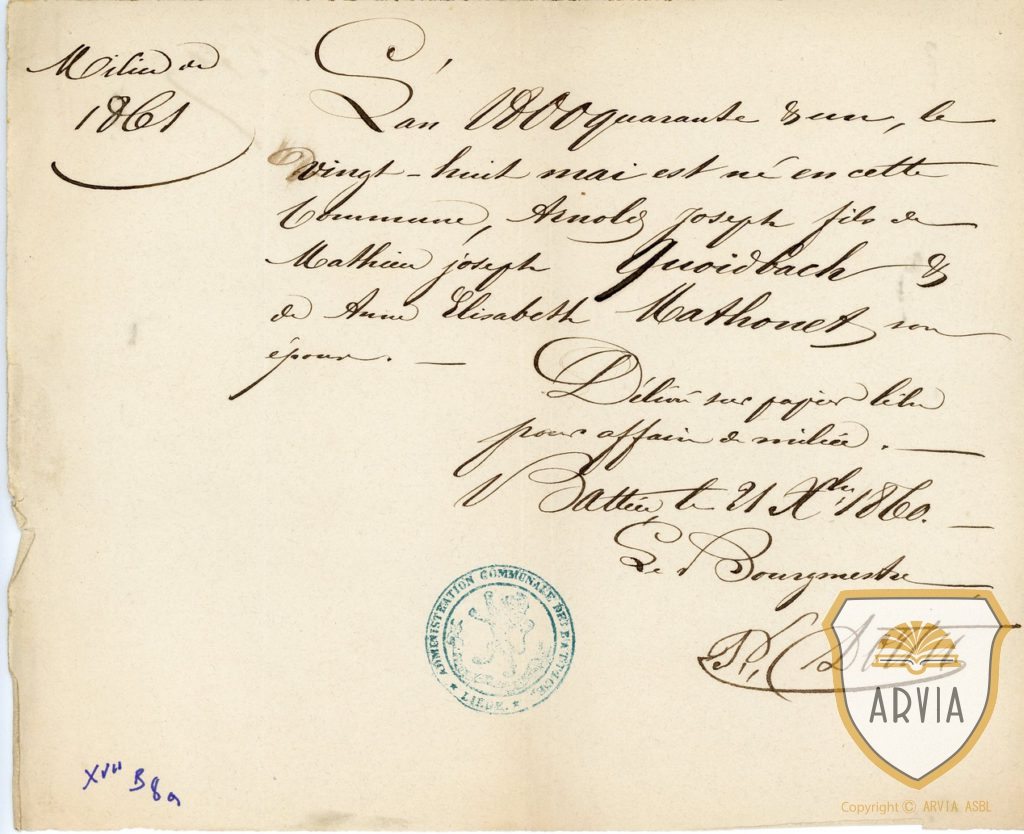 Milice de
1861
L'an 1800 quarante & un, le
vingt-huit mai est né en cette
Commune, Arnold Joseph fils de
Mathieu joseph Quoidbach &
de Anne Elisabeth Mathonet, son
épouse. —
Délivré sur papier libre
pour affaire de milice. —
Battice, le 21 Xbre 1860. —
Le Bourgmestre
ADMINISTRATION COMMUNALE DE BATTICE.
* LIEGE. *
ARVIA
XVII B 8a
Copyright © ARVIA ASBL